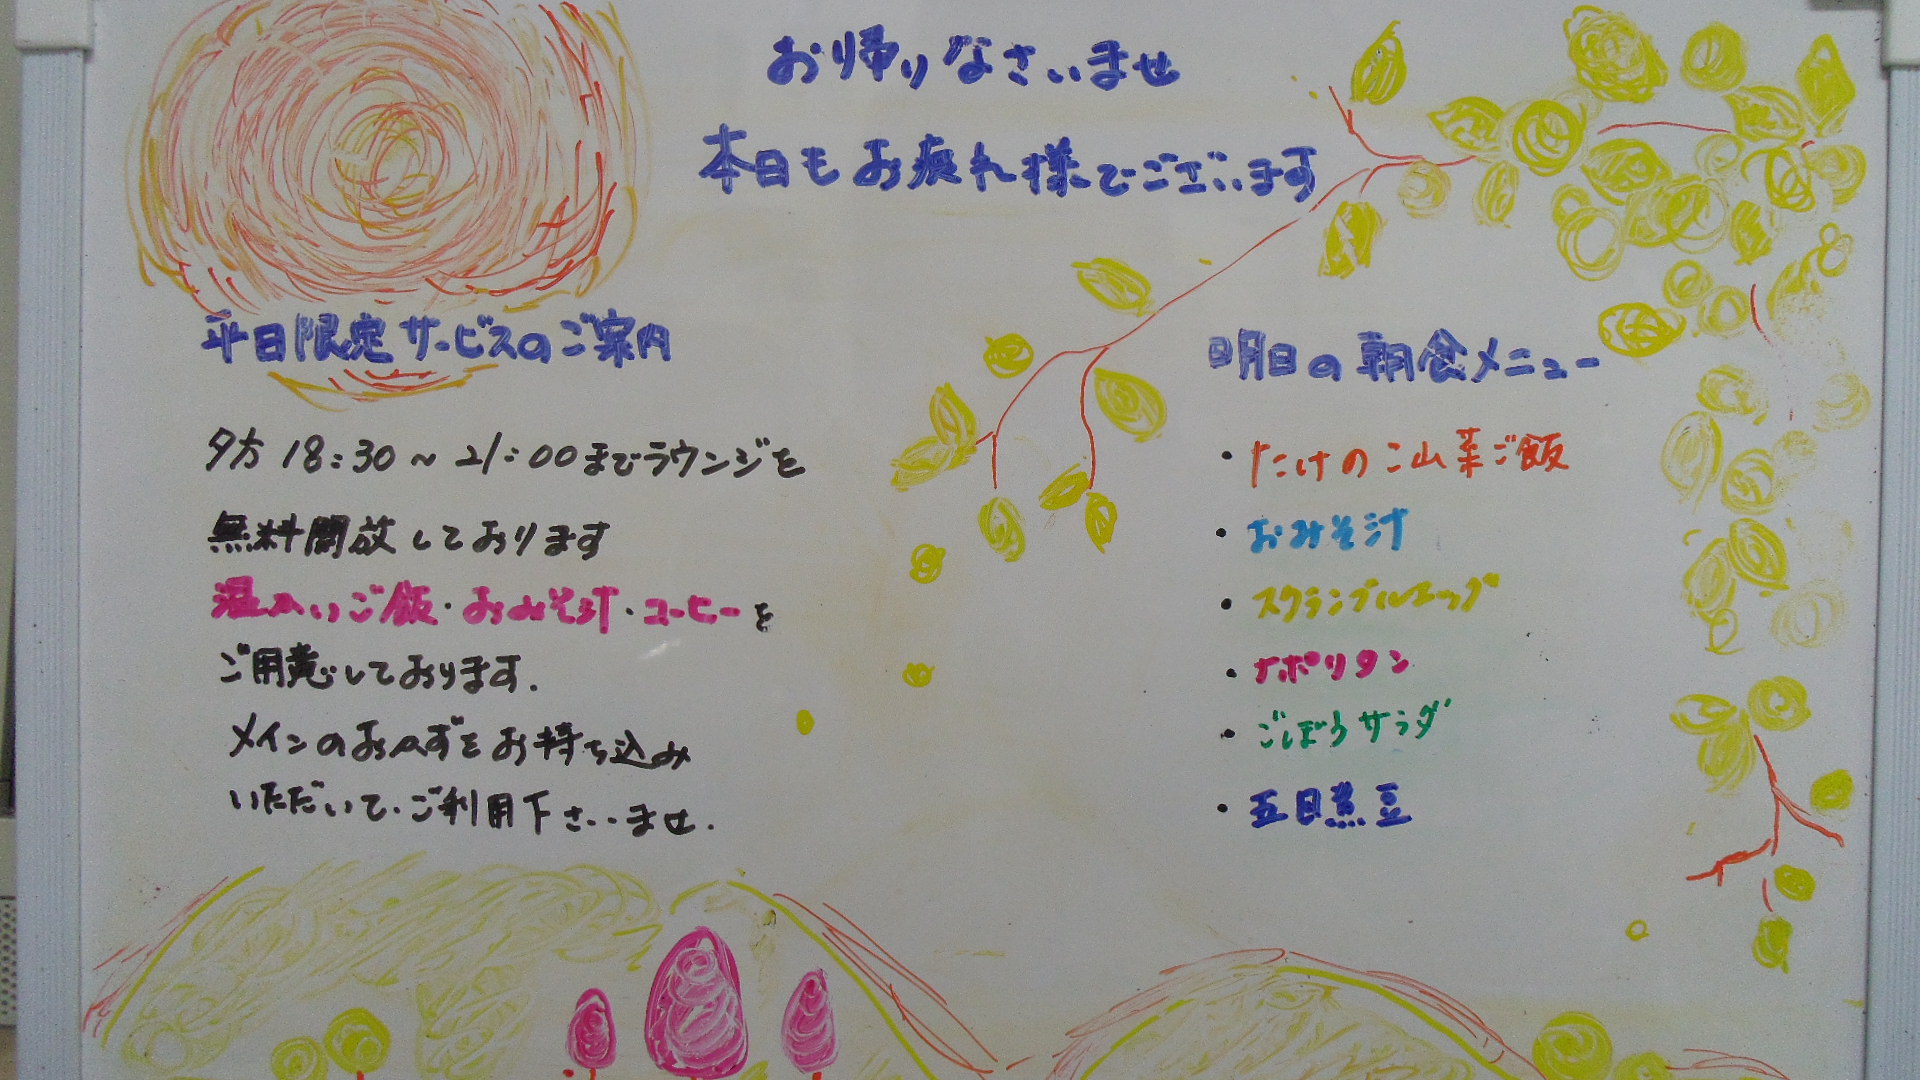 お帰りなさいませ
本日もお疲れ様でございます
平日限定サービスのご案内
夕方18:30~21:00までラウンジを
無料開放しております
温かいご飯・おみそ汁・コーヒーを
ご用意しております.
メインのおかずをお持ち込み
いただいて、ご利用下さいませ.
明日の朝食メニュー
・たけのこ山菜ご飯
・おみそ汁
・スクランブルエッグ
・ナポリタン
・ごぼうサラダ
・五目煮豆